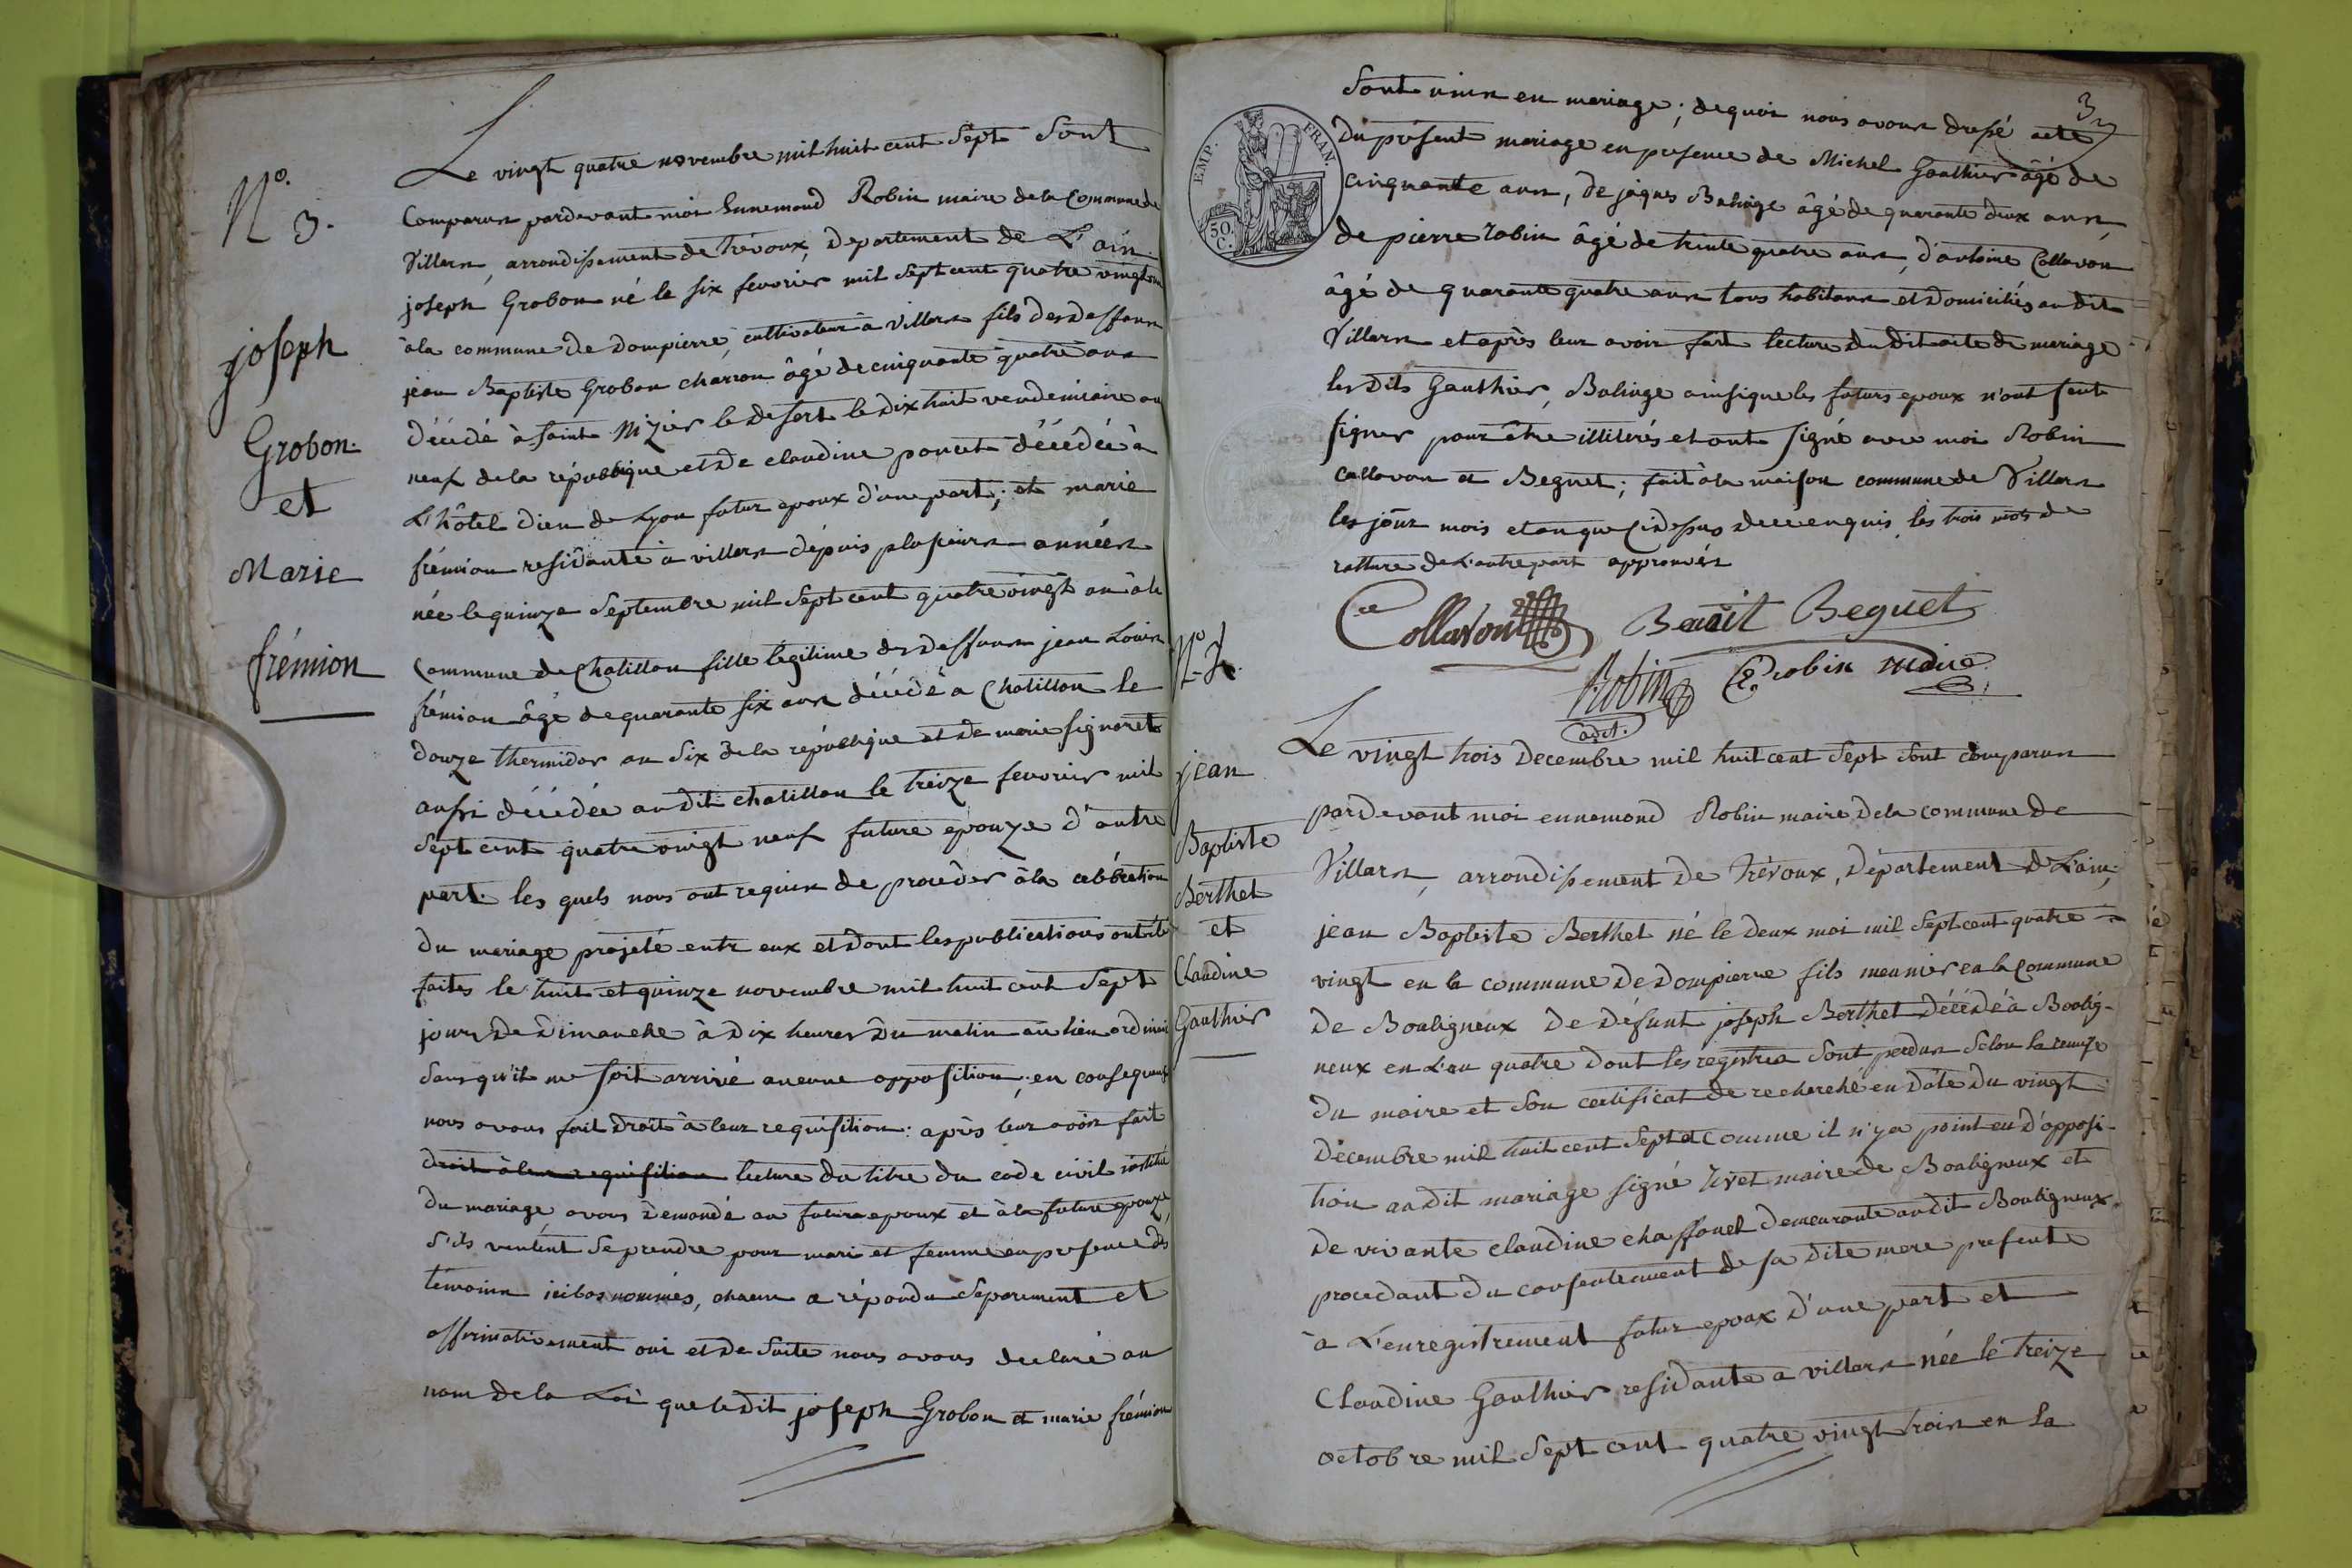 N.° 3.
joseph
Grobon.
et
Marie
frémion
Le vingt quatre novembre mil huit cent Sept Sont
Comparus pardevant moi Ennemond Robin maire de la Commune de
Villars, arrondissement de Trévoux, Departement de L'ain.
joseph Grobon né le six fevorier mil Sept cent quatre vingt
à la commune de Dompierre, cultivateur à Villars fils des deffuns
jean Baptiste Grobon charron âgé de cinquante quatre ans
décédé à saint Nizier le desert le dix huit vendemiaire an
neuf de la république et de claudine poncet décédée à
L'hôtel Dieu de Lyon futur epoux d'une part; et marie
frémion residante à villars dépuis plusieurs années
née le quinze Septembre mil Sept cent quatre vingt un à la
Commune de Chatillon fille legitime des deffuns jean Louis
frémion âgé de quarante six ans décédé a Chatillon le
douze thermidor an Six de la république et de marie signoret
aussi décédée au dit chatillon le treize fevorier mil
Sept cent quatre vingt neuf future epouze d'autre
part. les quels nous ont requis de proceder à la celébration
du mariage projeté entr eux et dont les publications ont été
faites le huit et quinze novembre mil huit cent Sept
jours de Dimanche à dix heures du matin au lieu ordinaire
Sans qu'il ne soit arrivé aucune opposition; en consequence
nous avons fait droit à leur requisition: après leur avoir fait
droit à leur requisition lecture du titre du code civil intitulé
du mariage avons demandé au futur epoux et à la future epouze,
S'ils veulent Se prendre pour mari et femme en presence des
témoins ici bas nommés, chacun a répondu Séparement et
affirmativement oui et de Suite nous avons declaré au
nom de la Loi que le dit joseph Grobon et marie frémion
3
EMP. FRAN.
50. C.
Sont unis en mariage; de quoi nous avons dressé acte
Du présent mariage en presence de Michel Gauthier âgé de
cinquante ans, de jaques Balivge âgé de quarante deux ans,
de pierre robin âgé de trente quatre ans, d'antoine Collavon
âgé de quarante quatre ans tous habitans et domiciliés au dit
Villars et après leur avoir fait lecture du dit acte de mariage
les dits Gauthier, Balivge ainsi que les futurs epoux n'ont scu
signer pour être illiterés et ont signé avec moi Robin
Collavon et Beguet; fait à la maison commune de Villars
les jour mois et an que cidessus de ce enquis, les trois mots de
rature de L'autre part approuvés
Collavon Benoit Beguet
Robin adjt. E. Robin maire
N.° 4.
jean
Baptiste
Berthet
et
Claudine
Gauthier
Le vingt trois Decembre mil huit cent Sept Sont comparus
pardevant moi ennemond Robin maire de la commune de
Villars, arrondissement de Trévoux, Département de L'ain,
jean Baptiste Berthet né le deux mai mil Sept cent quatre
vingt en la commune de Dompierre fils meunier en la Commune
de Bouligneux de défunt joseph Berthet décédé à Boulig-
neux en L'an quatre dont les registres Sont perdus Selon la remise
du maire et Son certificat de recherché en date du vingt
Décembre mil huit cent Sept et comme il n'y a point eu d'opposi-
tion au dit mariage signé maire de Bouligneux et
de vivante claudine chaffouet demeurante au dit Bouligneux
procedant du consentement de sa dite mere presente
à L'enregistrement futur epoux d'une part et
Claudine Gauthier residante a villars née le treize
octobre mil Sept cent quatre vingt trois en la